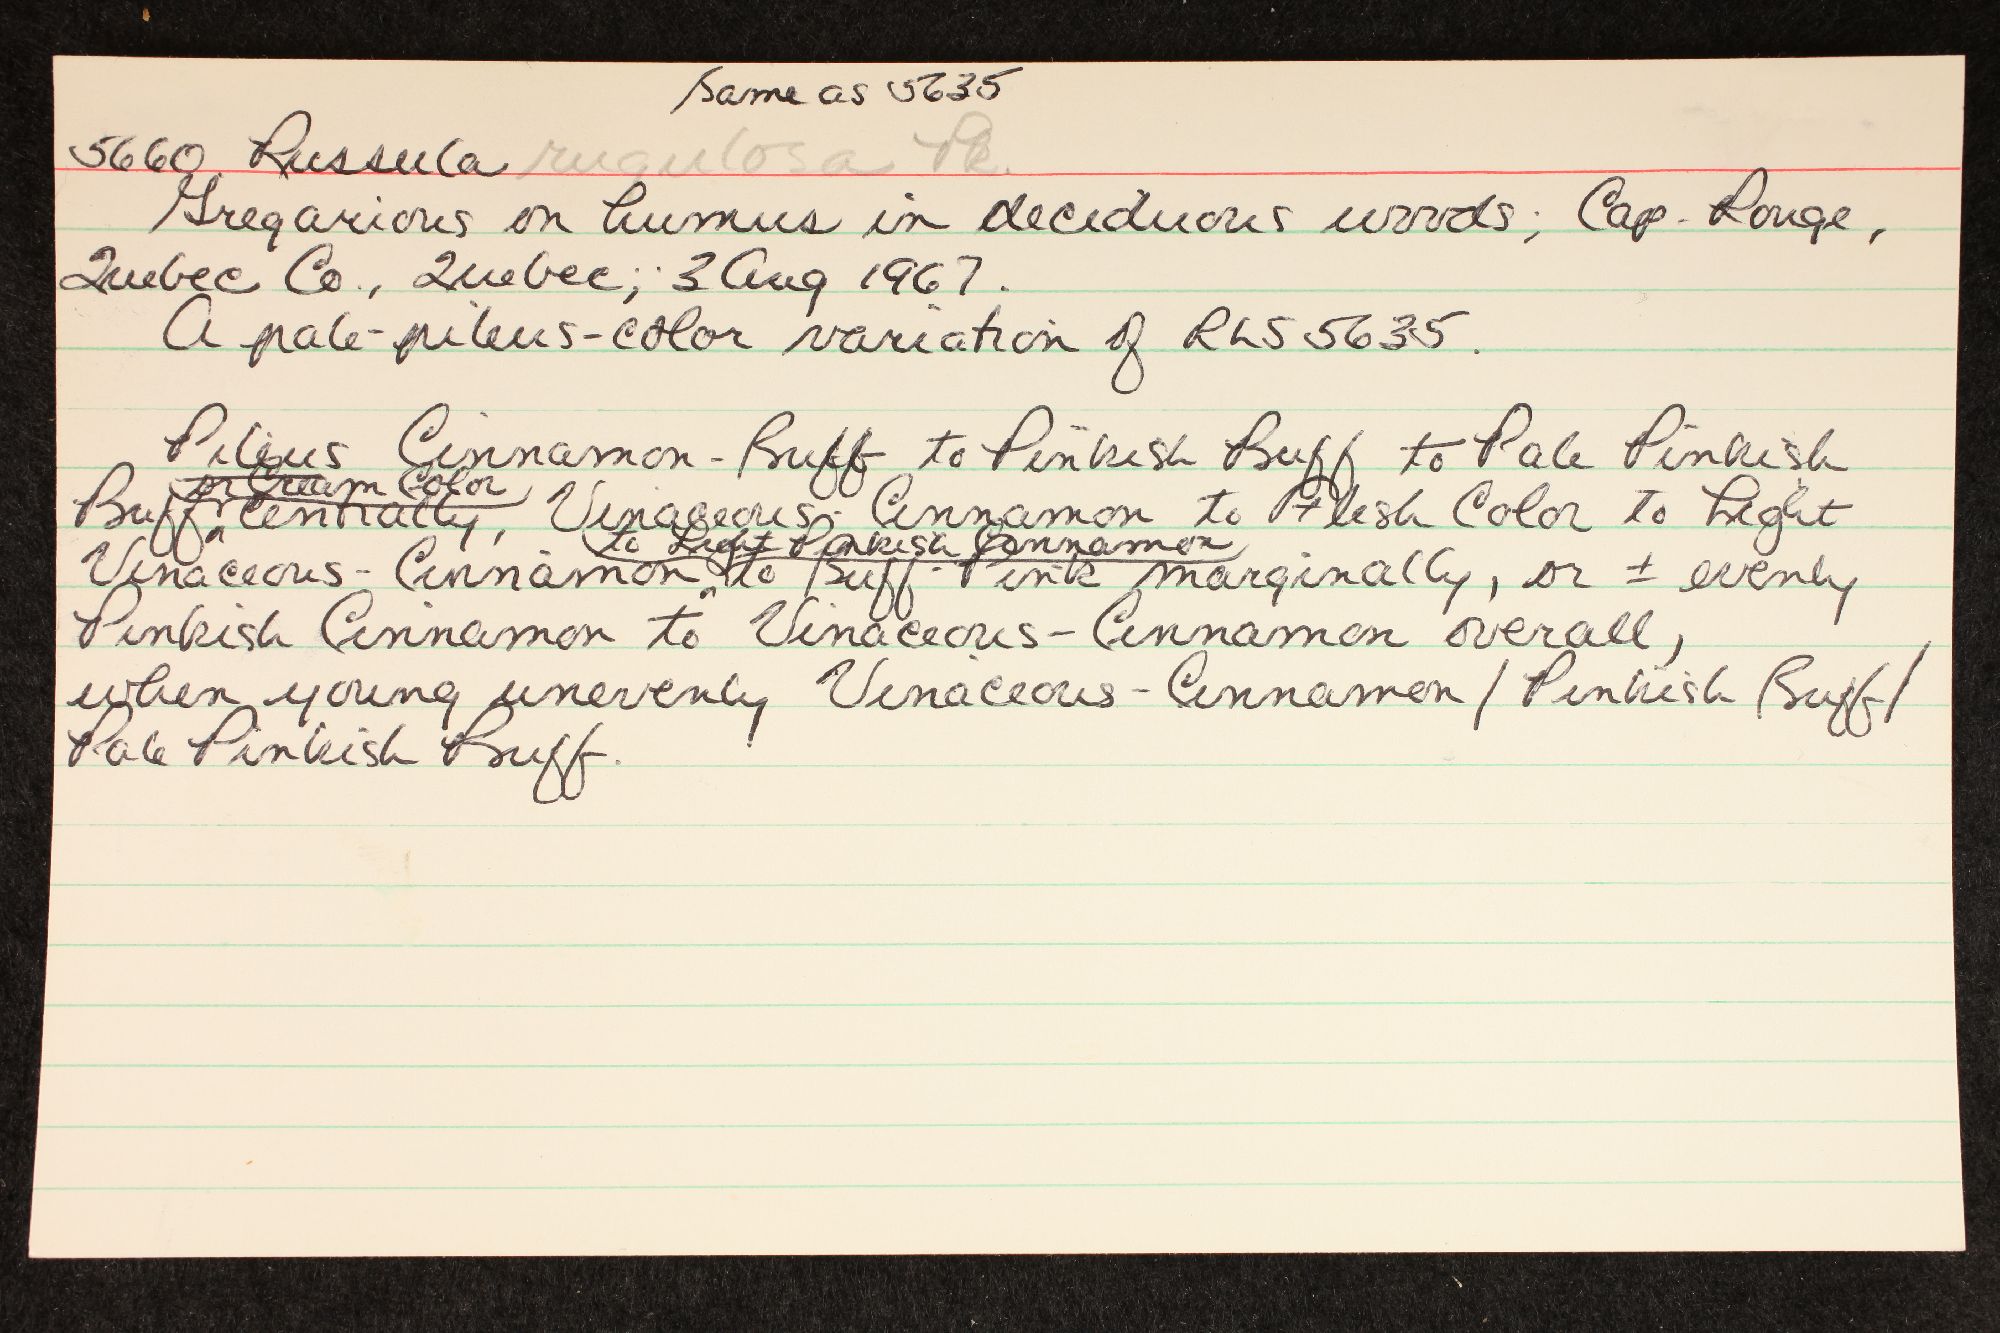 Same as 5635
5660 Russula rugulosa Pk.
Gregarious on humus in deciduous woods; Cap-Rouge,
Quebec Co., Quebec; 3 Aug 1967.
A pale-pileus-color variation of RLS 5635.
Pileus Cinnamon-Buff to Pinkish Buff to Pale Pinkish
or Cream Color
Buff ^ centrally, Vinaceous-Cinnamon to Flesh Color to Light
to Light Pinkish Cinnamon
Vinaceous-Cinnamon ^ to Buff-Pink marginally, or ± evenly
Pinkish Cinnamon to Vinaceous-Cinnamon overall,
when young unevenly Vinaceous-Cinnamon/Pinkish Buff/
Pale Pinkish Buff.